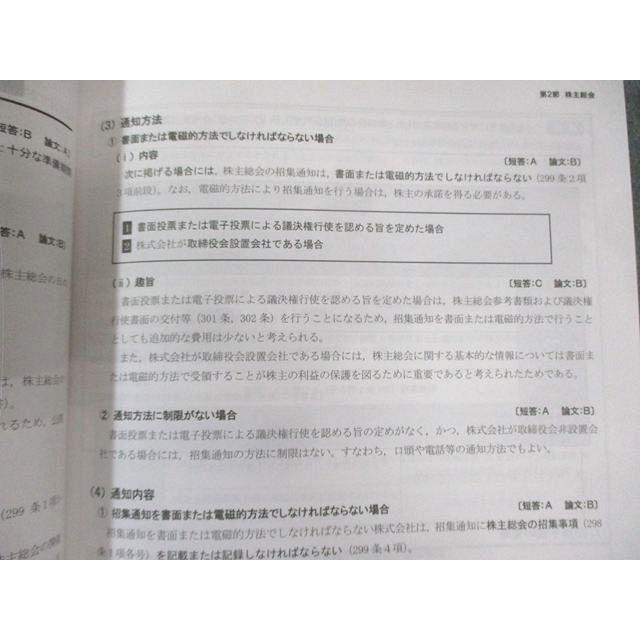 第2節 株主総会
短答:B 論文:A〕
に十分な準備期間
答:A 論文:B〕
株主総会の日の
は、株主総会の
るため,
(299条1項
(3) 通知方法
① 書面または電磁的方法でしなければならない場合
(ⅰ) 内容 〔短答:A 論文:B〕
次に掲げる場合には,株主総会の招集通知は,書面または電磁的方法でしなければならない(299条2項
3項前段)。なお,電磁的方法により招集通知を行う場合は,株主の承諾を得る必要がある。
1 書面投票または電子投票による議決権行使を認める旨を定めた場合
2 株式会社が取締役会設置会社である場合
(ⅱ) 趣旨 〔短答:C 論文:B〕
書面投票または電子投票による議決権行使を認める旨を定めた場合は,株主総会参考書類および議決権
行使書面の交付等(301条,302条)を行うことになるため,招集通知を書面または電磁的方法で行うこと
としても追加的な費用は少ないと考えられる。
また,株式会社が取締役会設置会社である場合には,株主総会に関する基本的な情報については書面ま
たは電磁的方法で受領することが株主の利益の保護を図るために重要であると考えられたためである。
② 通知方法に制限がない場合 〔短答:A 論文:B〕
書面投票または電子投票による議決権行使を認める旨の定めがなく,かつ,株式会社が取締役会非設置会
社である場合には,招集通知の方法に制限はない。すなわち,口頭や電話等の通知方法でもよい。
(4) 通知内容
① 招集通知を書面または電磁的方法でしなければならない場合 〔短答:A 論文:B〕
招集通知を書面または電磁的方法でしなければならない株式会社は,招集通知に株主総会の招集事項(298
条1項各号)を記載または記録しなければならない(299条4項)。